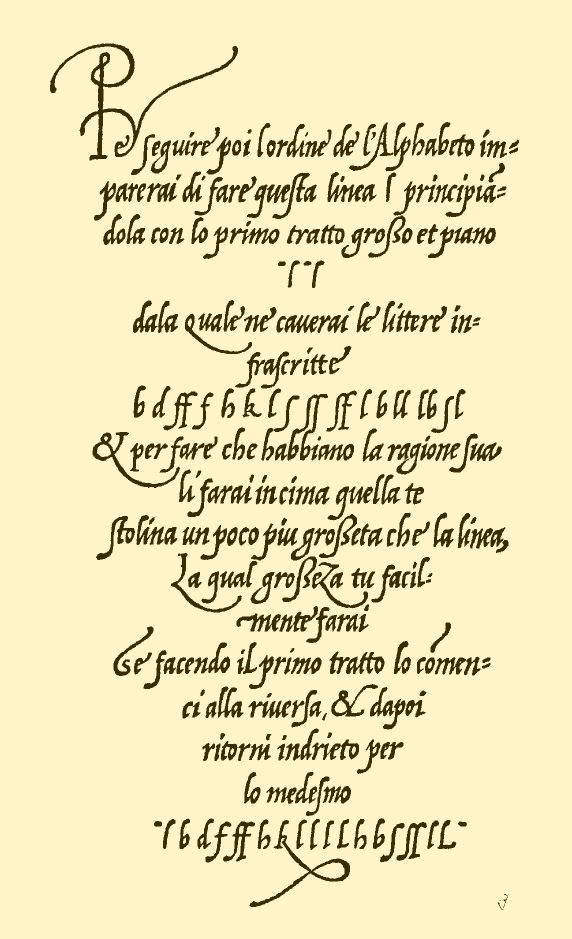 Pe ſeguire poi lordine de l'Alphabeto im=
parerai di fare queſta linea l principiā=
dola con lo primo tratto groſſo et piano
‾ſ ‾ſ
dala quale ne cauerai le littere in=
fraſcritte
b d ff f h k l ſ ſſ ſf l b ll lb ſl
& per fare che habbiano la ragione ſua
li farai in cima quella te
ſtolina un poco piu groſſeta che la linea,
La qual groſſeza tu facil=
mente farai
Se facendo il primo tratto lo cōmen=
ci alla riuerſa, & dapoi
ritorni indrieto per
lo medeſmo
l b d f ff h k l l l l h b ſ ſſ l L